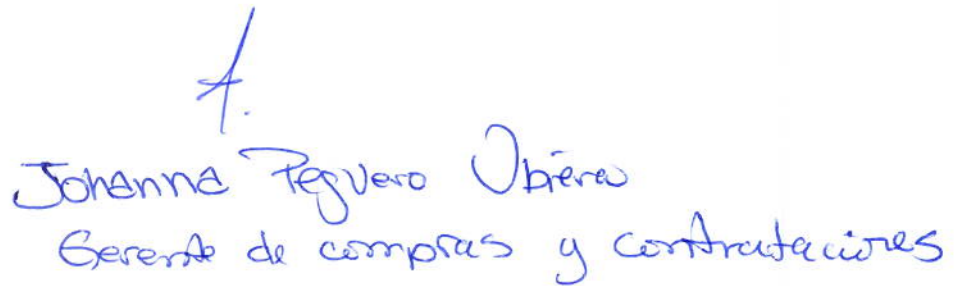 A.
Johanna Peguero Ubiera
Gerente de compras y contrataciones